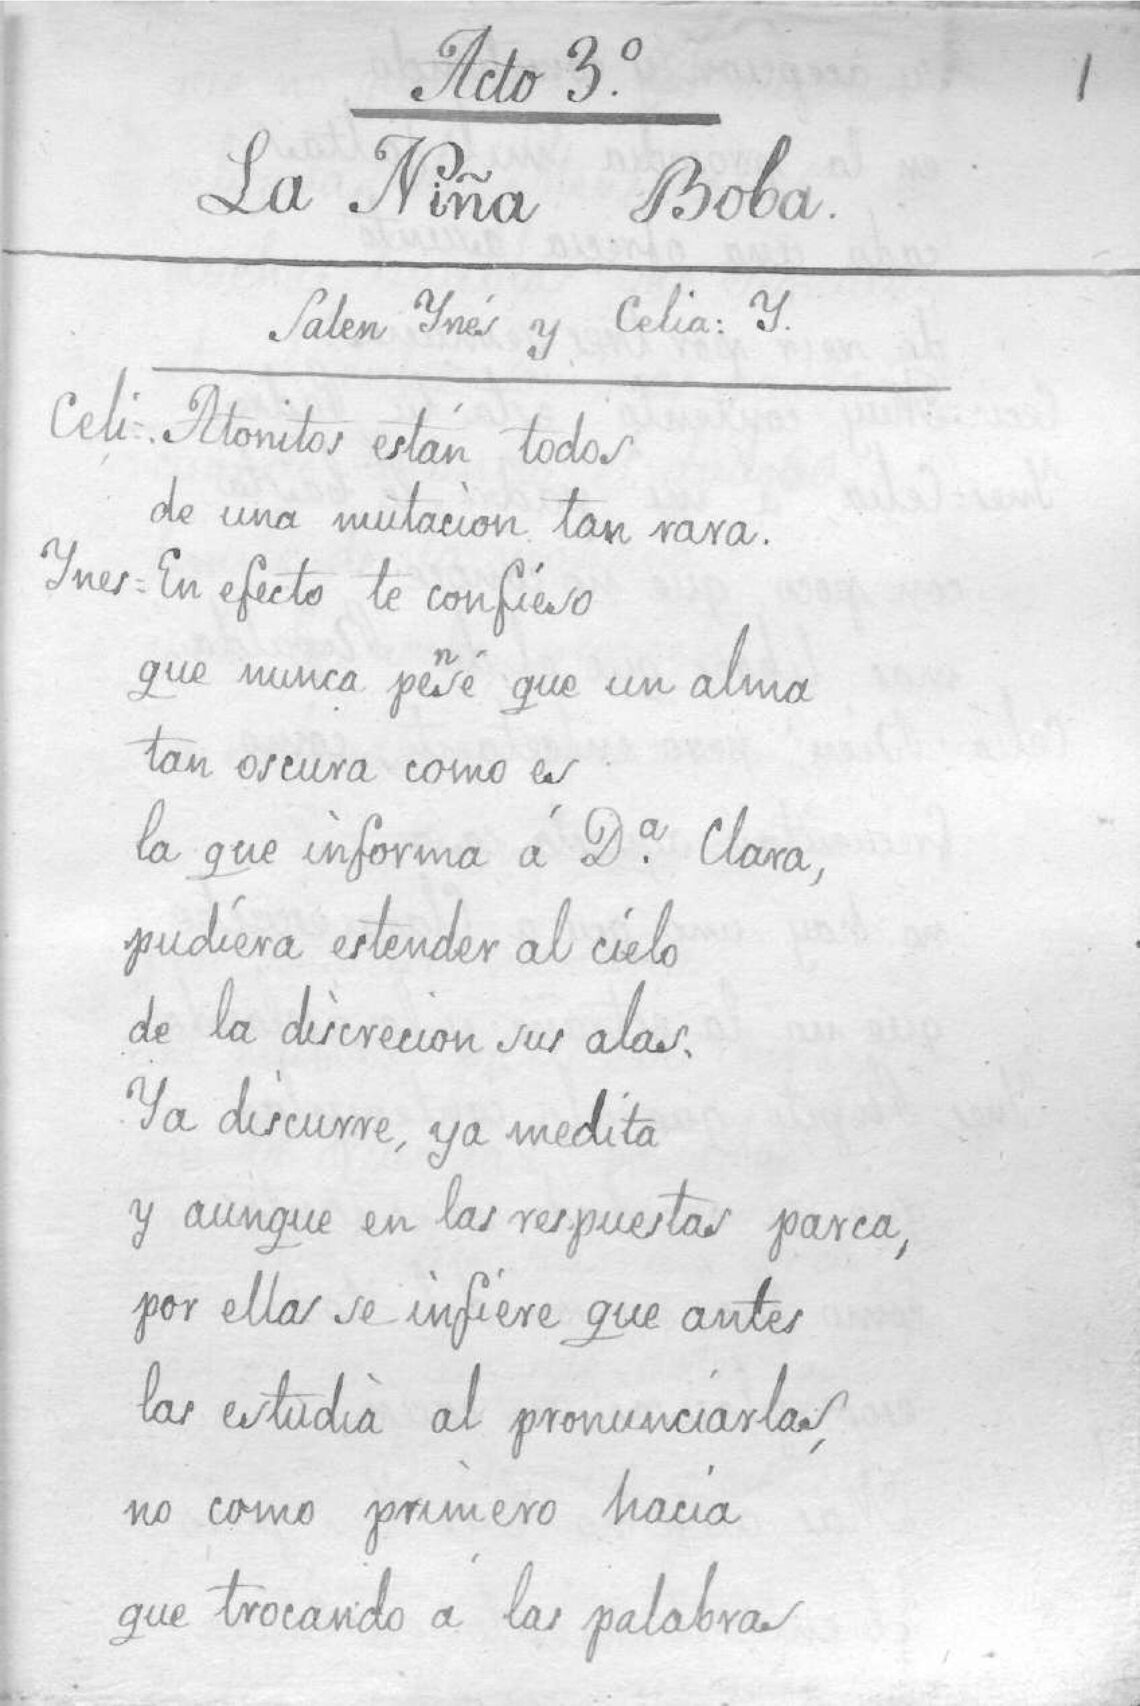 Acto 3.º
1
La Niña Boba.
Salen Ynés y Celia: Y.
Celi=. Atonitos están todos
de una mutacion tan rara.
Ynes= En efecto te confieso
que nunca pensé que un alma
tan oscura como es
la que informa á D.ª Clara,
pudiera estender al cielo
de la discrecion sus alas.
Ya discurre, ya medita
y aunque en las respuestas parca,
por ellas se infiere que antes
las estudia al pronunciarlas,
no como primero hacia
que trocando á las palabras